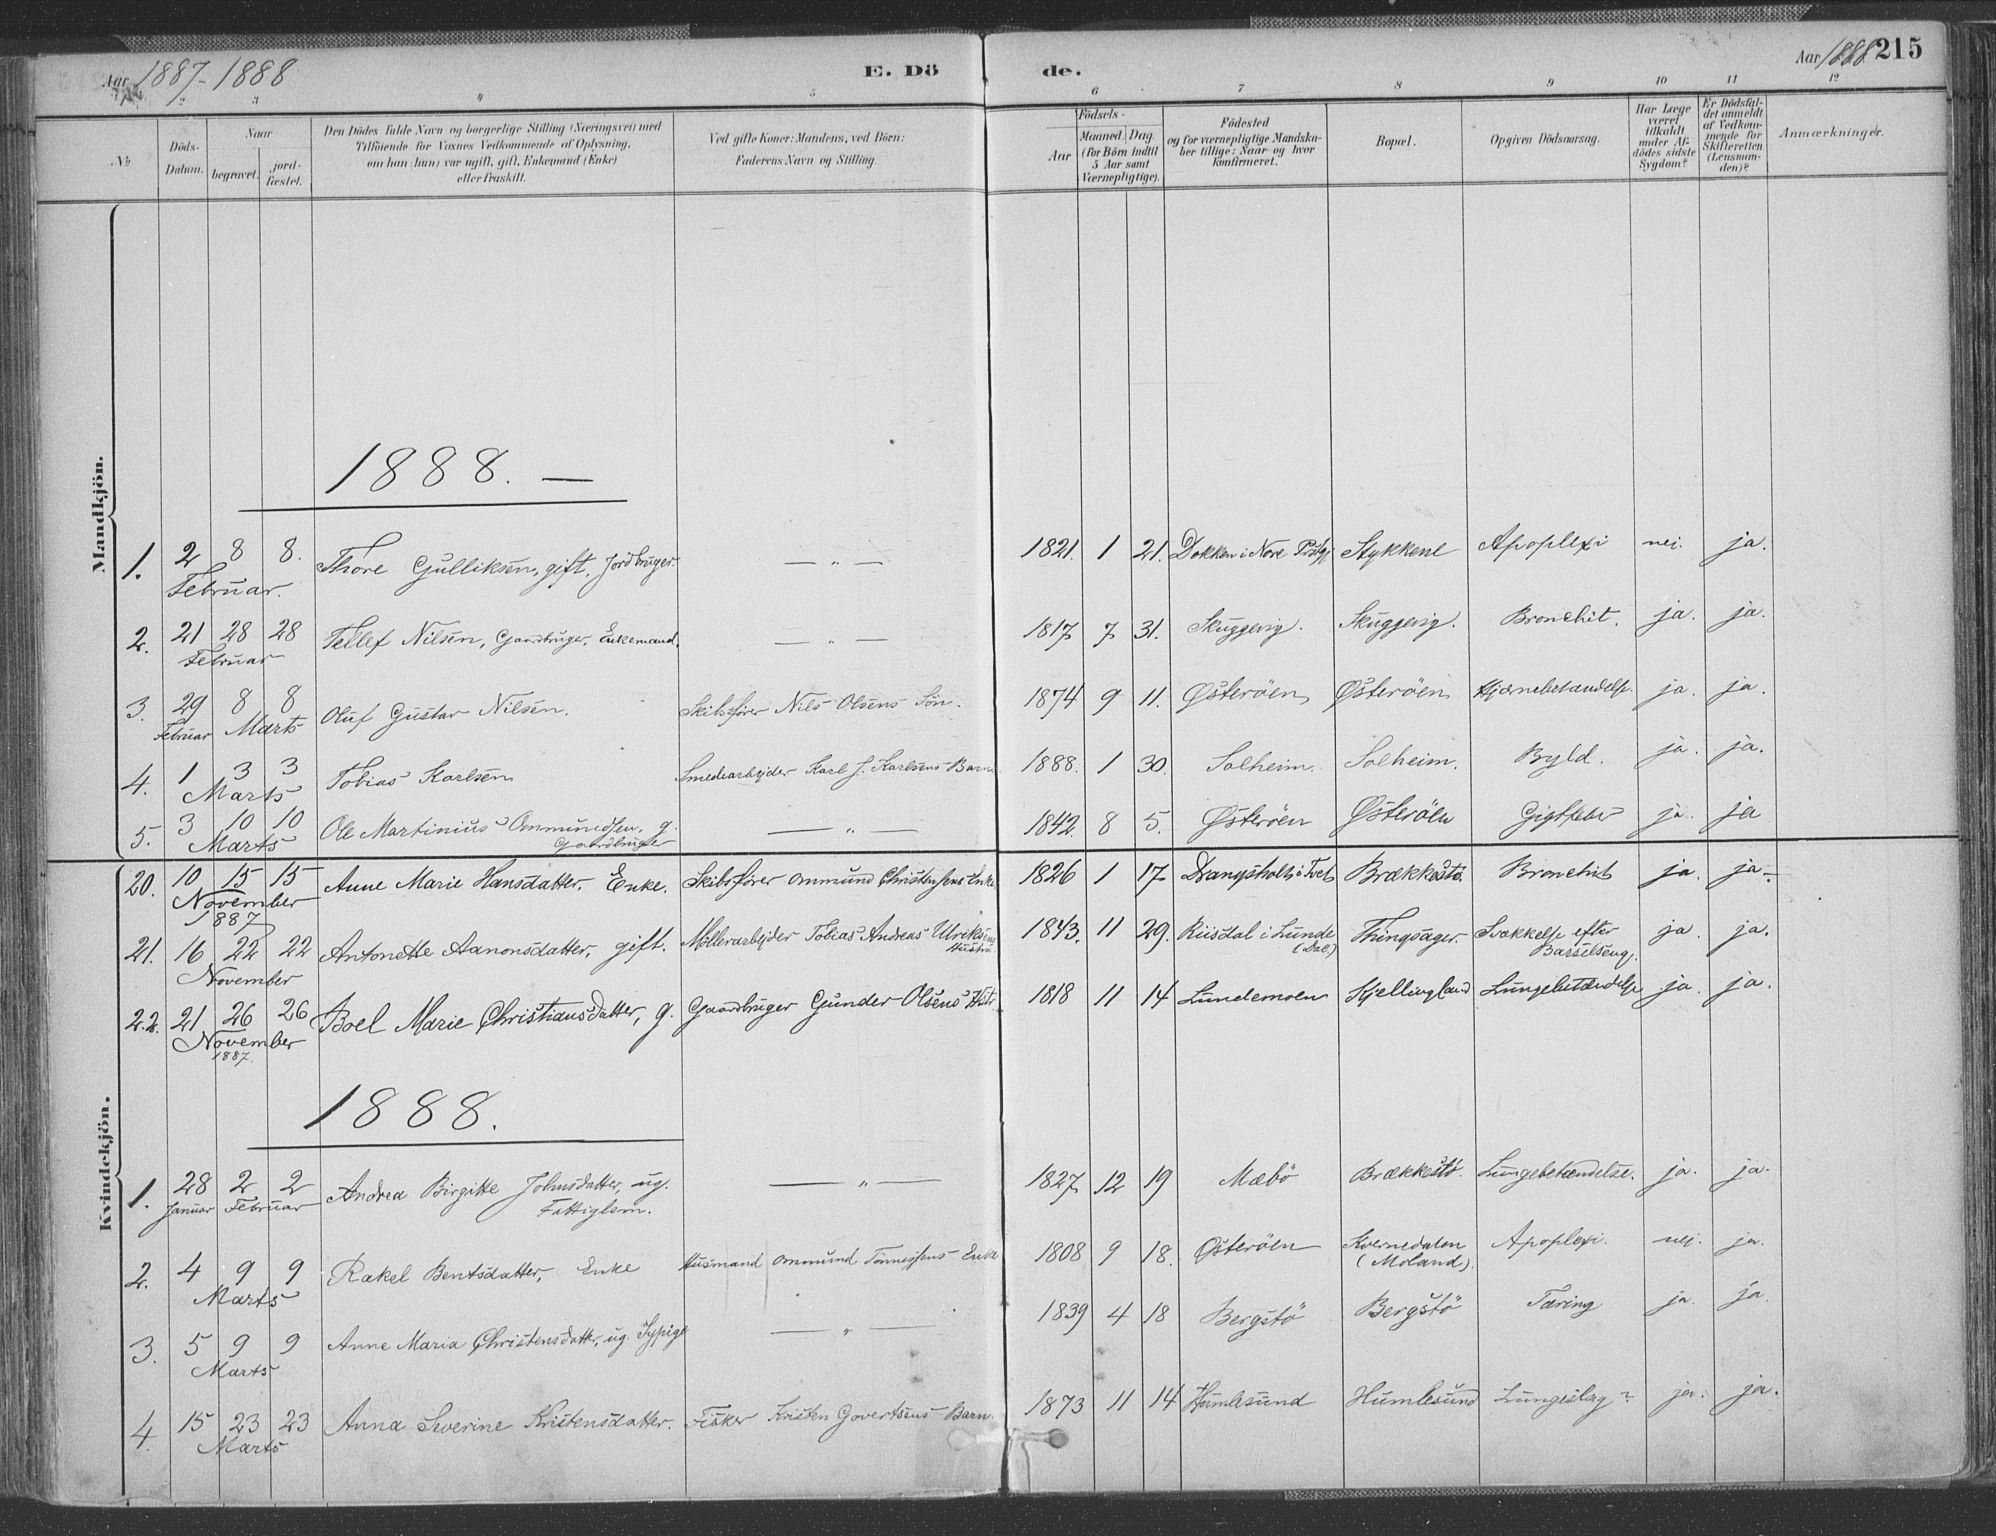 Aar 1887-1888
E. Dö
de.
Aar 1888 215
1 2 3 4 5 6 7 8 9 10 11 12
No
Döds-Datum.
Naar
begravet.
jord-fæstet.
Den Dödes fulde Navn og borgerlige Stilling (Næringsvei) med
Tilföiende for Voxnes Vedkommende af Oplysning,
om han (hun) var ugift, gift, Enkemand (Enke)
eller fraskilt.
Ved gifte Koner: Mandens, ved Börn:
Faderens Navn og Stilling.
Födsels-
Aar
Maaned. Dag.
(for Börn indtil
5 Aar samt
Værnepligtige).
Födested
og for værnepligtige Mandska-
ber tillige: Naar og hvor
konfirmeret.
Bopæl.
Opgiven Dödsaarsag.
Har Læge
været
tilkaldt
under Af-
dödes sidste
Sygdom?
Er Dödsfal-
det anmeldt
af Vedkom-
mende for
Skifteretten
(Lensman-
den)?
Anmærkninger.
Mandkjön.
1888. —
1. 2 8 8. Februar. Thore Gulliksen, gift, Jordbruger. — " — 1821. 1 21. Dokken i Nore Stykkene Apoplexi nei. ja.
2. 21 28 28 Februar Tellef Nilsen, Gaardbruger, Enkemand. — " — 1817 7 31. Skuggevig. Skuggevig. Bronchit. ja. ja.
3. 29 Februar 8 8 Marts Oluf Gustav Nilsen. Skibsfører Nils Olsens Søn. 1874 9 11. Østerøen Østerøen Hjærnebetændelse. ja. ja.
4. 1 3 3 Marts Tobias Karlsen Smedearbejder Karl J. Karlsens Barn 1888. 1 30. Solheim. Solheim. Byld. ja. ja.
5. 3 10 10 Marts Ole Martinius Ommundsen, g. Gaardbruger — " — 1842. 8 5. Østerøen Østerøen Gigtfeber ja. ja
Kvindekjön.
20. 10 15 15 November 1887 Anne Marie Hansdatter, Enke. Skibsfører Ommund Christensens Enke. 1826 1 17. Drangsholt i Tvet Brækkestø. Bronchit ja. ja.
21. 16 22 22 November Antonette Aanonsdatter, gift. Møllerarbejder Tobias Andreas Ulriksens Hustru 1843. 11 29. Riisdal i Lunde (Dal.) Thingsager. Svækkelse efter Barselseng. ja. ja.
22. 21 26 26 November 1887. Boel Marie Christiansdatter, g. Gaardbruger Gunder Olsens Hstr. 1818 11 14 Lundemoen Kjellingland Lungebetændelse ja. ja.
1888.
1. 28 Januar 2 2 Februar Andrea Birgitte Johnsdatter, ug. Fattiglem. — " — 1827 12 19 Mæbö Brækkestø. Lungebetændelse. ja. ja.
2. 4 9 9 Marts Rakel Bentsdatter, Enke Husmand Ommund Tönnessens Enke 1808 9 18. Østerøen Kvernedalen (Moland). Apoplexi. nei. ja.
3. 5 9 9 Marts Anne Maria Christensdatter, ug. Sypige — " — 1839 4 18 Bergstö Bergstö Tæring ja. ja.
4. 15 23 23 Marts Anna Severine Kristensdatter. Fisker Kristen Govertsens Barn. 1873 11 14 Humlesund Humlesund Lungeslag? ja. ja.